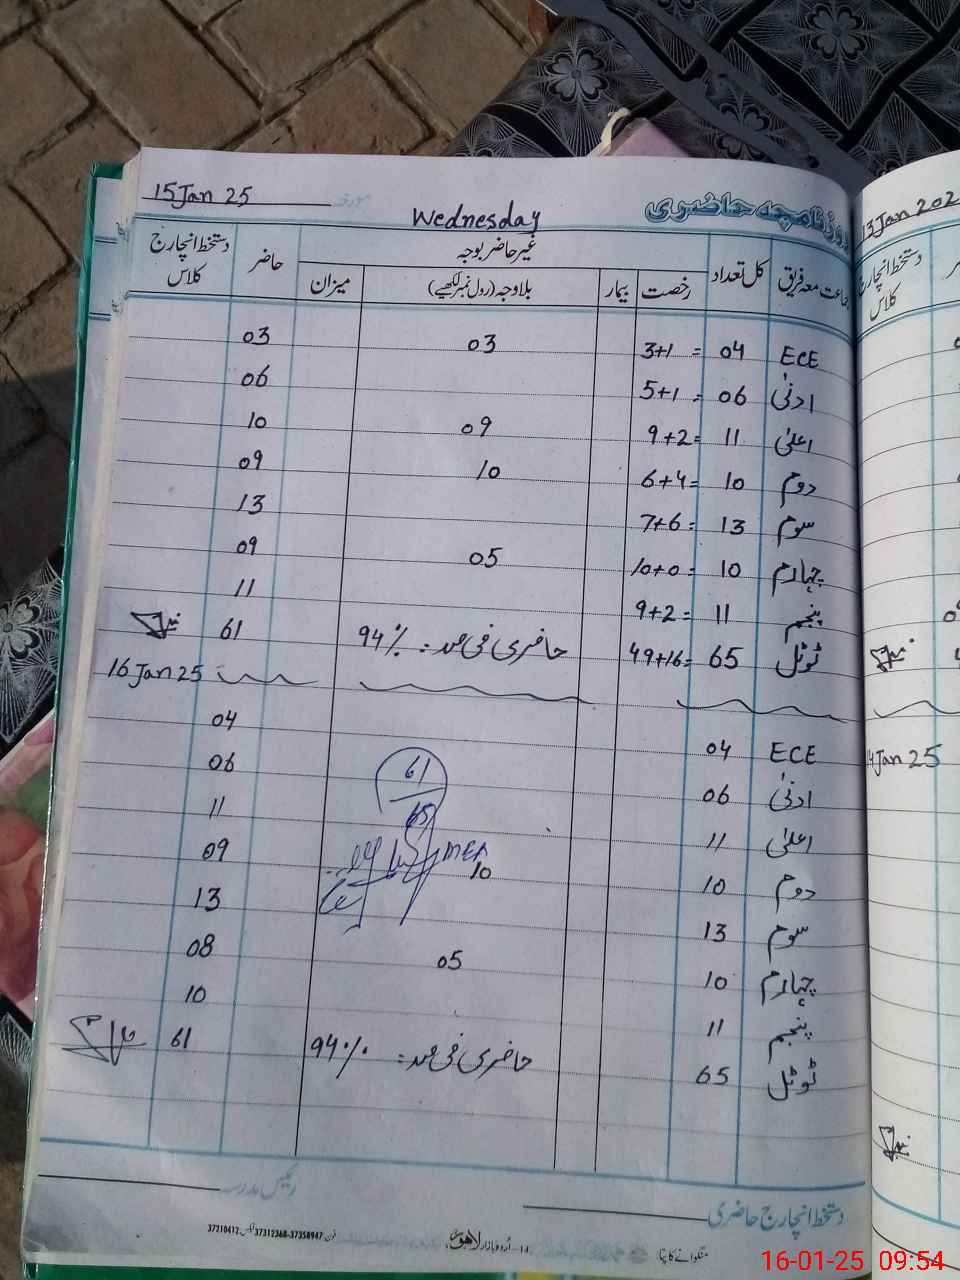 روزنامچہ حاضری Wednesday مورخہ 15 Jan 25
جماعت معہ فریق کل تعداد غیر حاضر بوجہ حاضر دستخط انچارج کلاس
رخصت بیمار بلاوجہ (رول نمبر لکھیے) میزان
ECE 04 3+1 = 03 03
ادنیٰ 06 5+1 = 06
اعلیٰ 11 9+2= 09 10
دوم 10 6+4= 10 09
سوم 13 7+6= 13
چہارم 10 10+0= 05 09
پنجم 11 9+2= 11
ٹوٹل 65 49+16= حاضری فی صد: 94% 61
16 Jan 25
ECE 04 04
ادنیٰ 06 06
اعلیٰ 11 11
دوم 10 10 09
سوم 13 13
چہارم 10 05 08
پنجم 11 10
ٹوٹل 65 حاضری فی صد: 94% 61
61
65
MEA
دستخط انچارج حاضری رئیس مدرسہ
منگوانے کا پتا
14-اُردو بازار لاہور
فون 37312368-37358947 فیکس: 37210412
13 Jan 202
دستخط انچارج کلاس
14 Jan 25
16-01-25 09:54